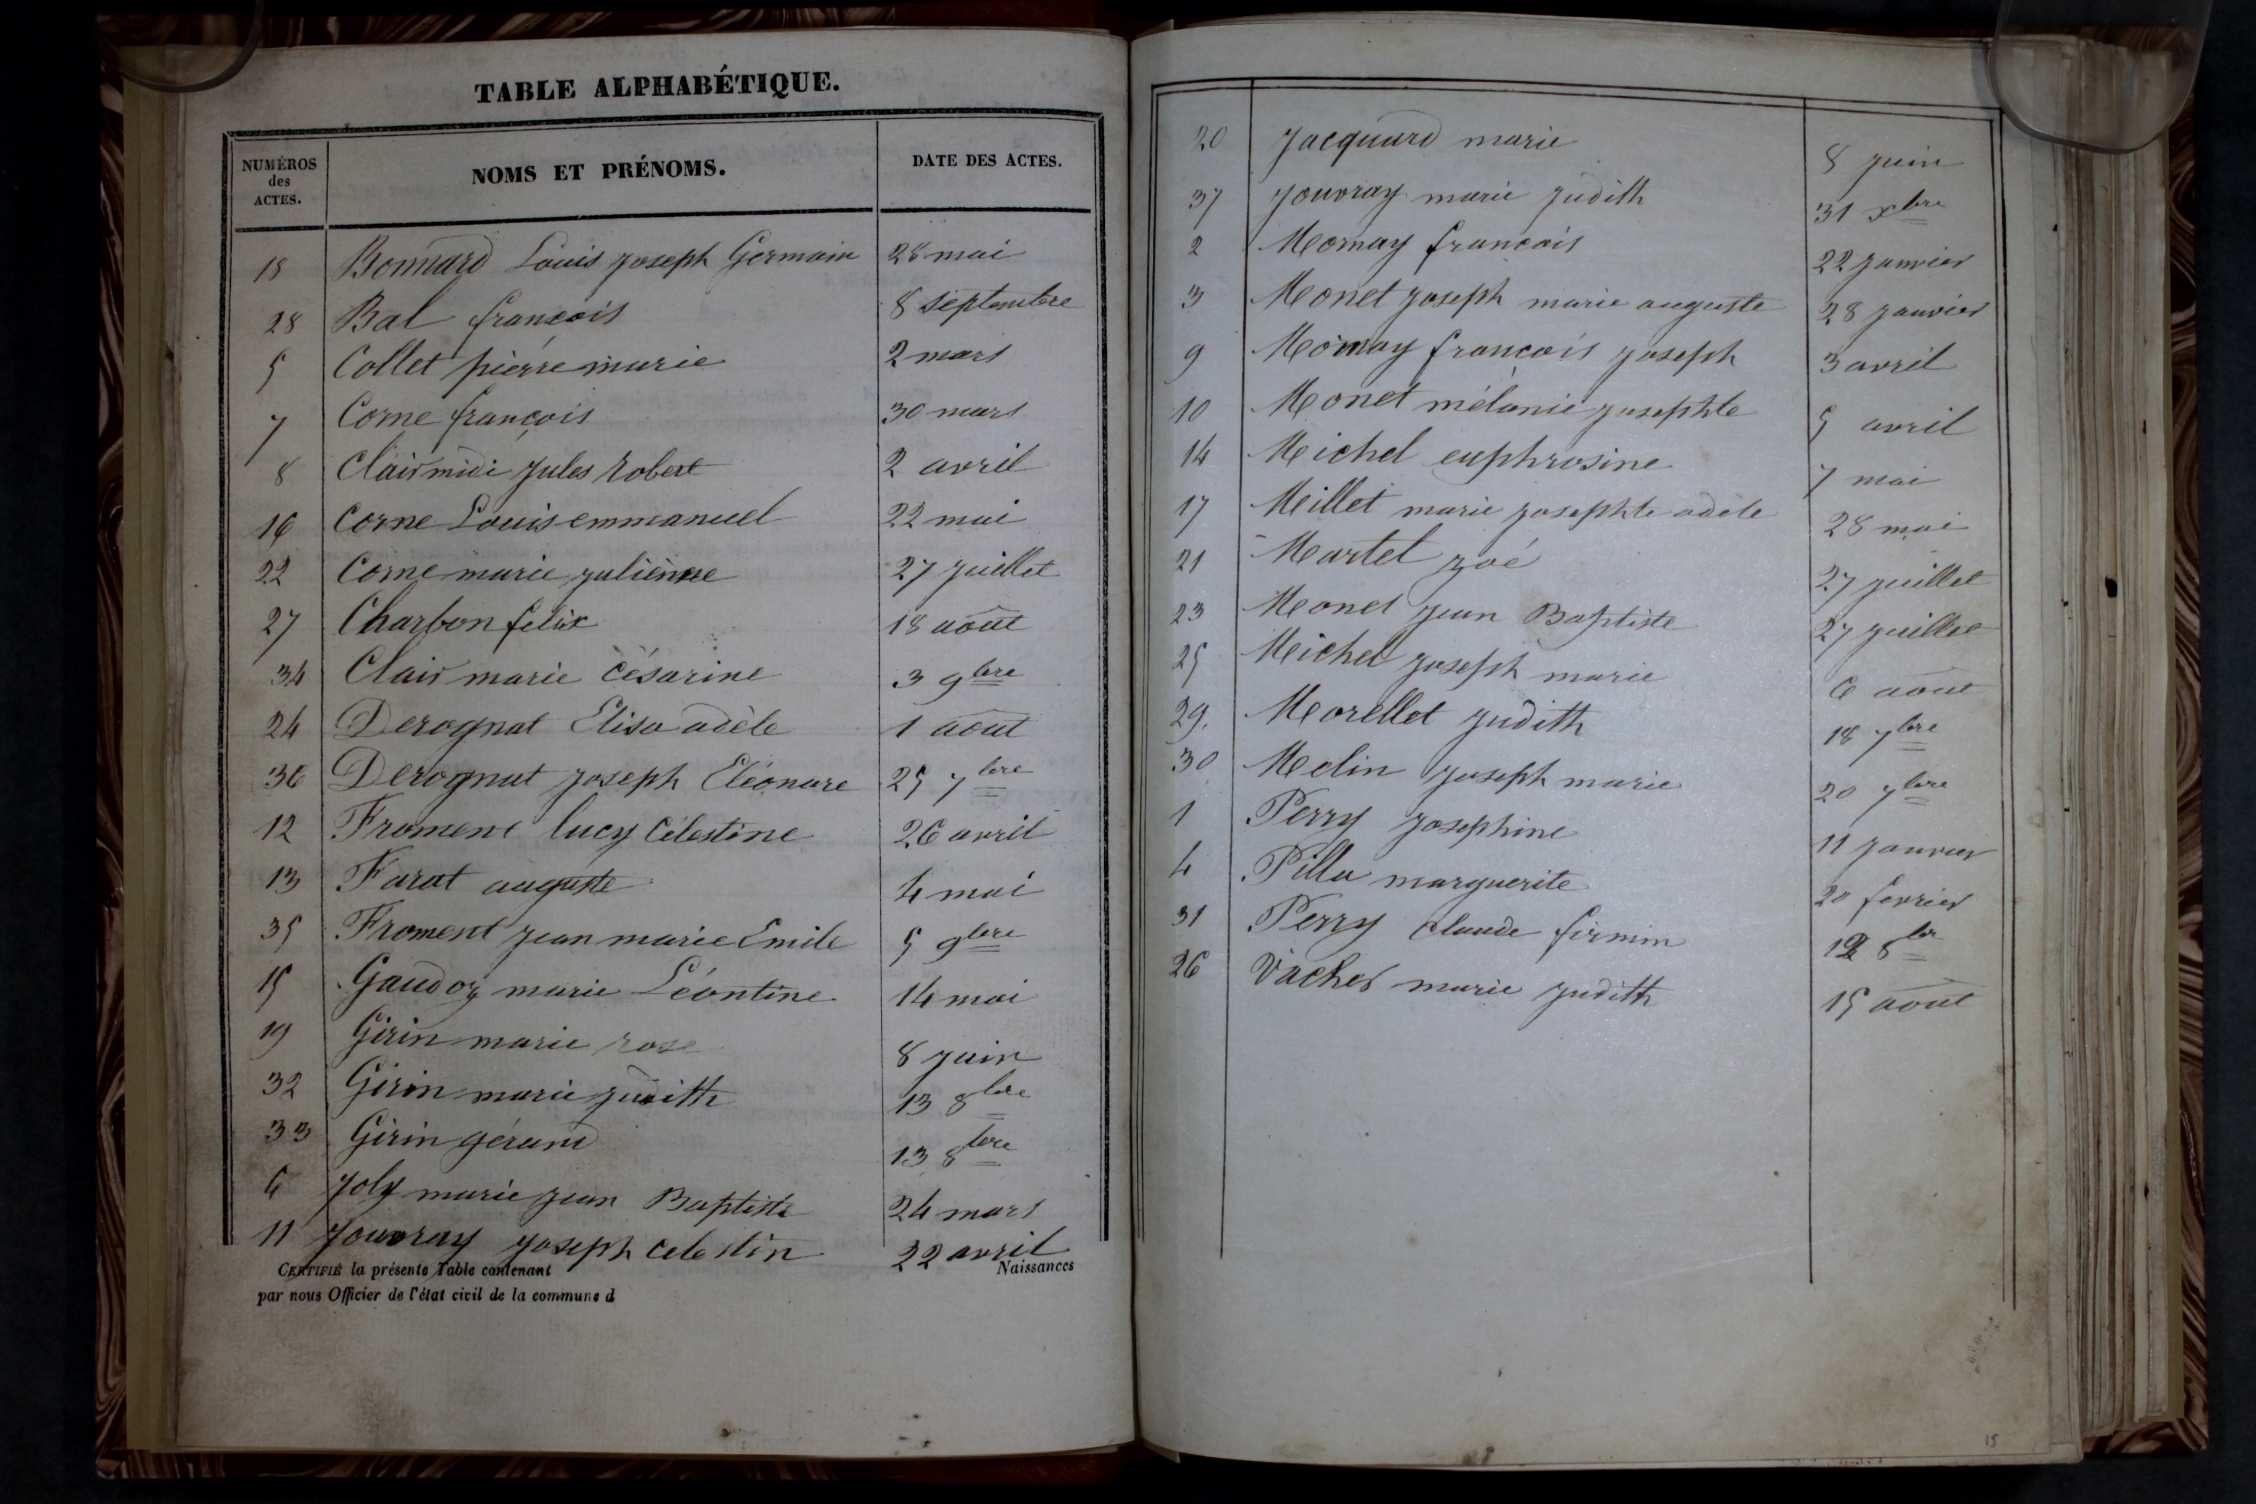 TABLE ALPHABÉTIQUE.
NUMÉROS des ACTES. NOMS ET PRÉNOMS. DATE DES ACTES.
18 Bonnard Louis joseph Germain 28 mai
28 Bal françois 8 septembre
5 Collet pierre marie 2 mars
7 Corne françois 30 mars
8 Clairmidi jules Robert 2 avril
16 Corne Louis emmanuel 22 mai
22 Corne marie julienne 27 juillet
27 Charbon felix 18 août
34 Clair marie Césarine 3 9bre
24 Derognat Elisa adèle 1 août
36 Derognat joseph Eléonare 25 7bre
12 Froment lucy Célestine 26 avril
13 Farat auguste 4 mai
35 Froment jean marie Emile 5 9bre
15 Gaudoz marie Léontine 14 mai
19 Girin marie rose 8 juin
32 Girin marie judith 13 8bre
33 Girin gérand 13 8bre
6 joly marie jean Baptiste 24 mars
11 jouvray joseph celestin 22 avril
CERTIFIÉ la présente Table contenant Naissances
par nous Officier de l'état civil de la commune d
20 jacquard marie 8 juin
37 jouvray marie judith 31 xbre
2 Mornay françois 22 janvier
3 Monet joseph marie auguste 28 janvier
9 Mornay françois joseph 3 avril
10 Monet mélanie josephte 5 avril
14 Michel euphrosine 7 mai
17 Millet marie josephte adèle 28 mai
21 Martel zoé 27 juillet
23 Monet jean Baptiste 27 juillet
25 Michel joseph marie 6 août
29. Morellet judith 18 7bre
30 Melin joseph marie 20 7bre
1 Perry josephine 11 janvier
4 Pilla marguerite 20 fevrier
31 Perry claude firmin 8br
26 Vacher marie judith 15 août
15